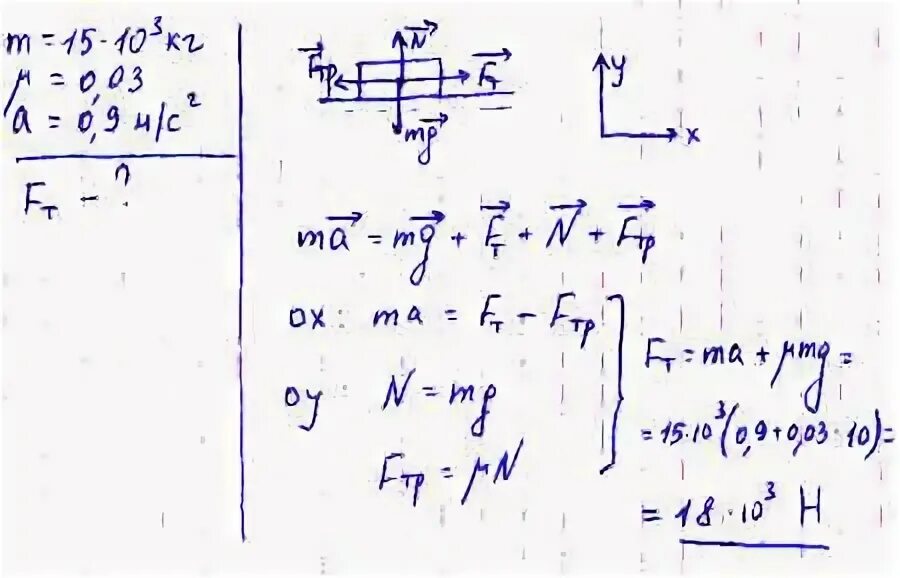 m = 15·10³ кг
μ = 0,03
a = 0,9 м/с²
Fт – ?
N
Fтр
Fт
mg
y
x
ma = mg + Fт + N + Fтр
ox: ma = Fт – Fтр
oy N = mg
Fтр = μN
Fт = ma + μmg =
= 15·10³(0,9+0,03·10) =
= 18·10³ Н